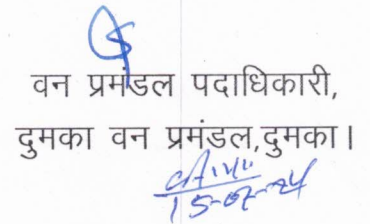 वन प्रमंडल पदाधिकारी,
दुमका वन प्रमंडल,दुमका।
15-07-24